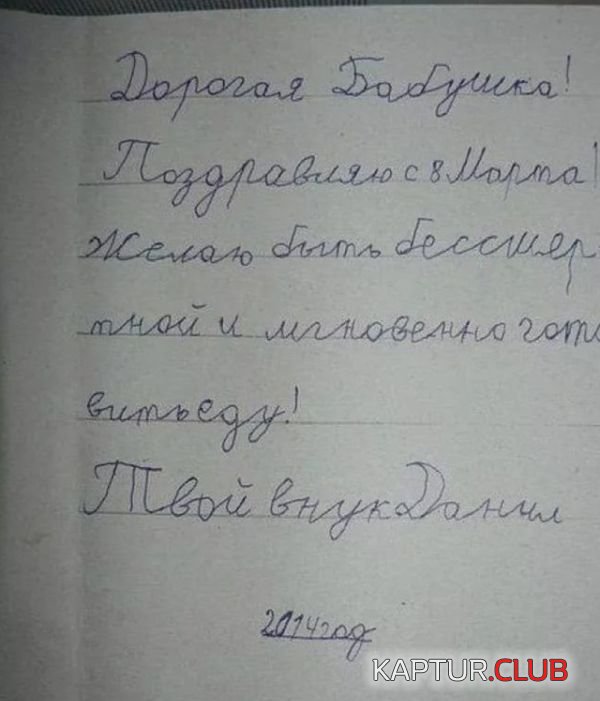 Дорогая Бабушка!
Поздравляю с 8 Марта!
Желаю быть бессмер
тной и мгновенно гото
вить еду!
Твой внук Данил
2014 год
KAPTUR.CLUB